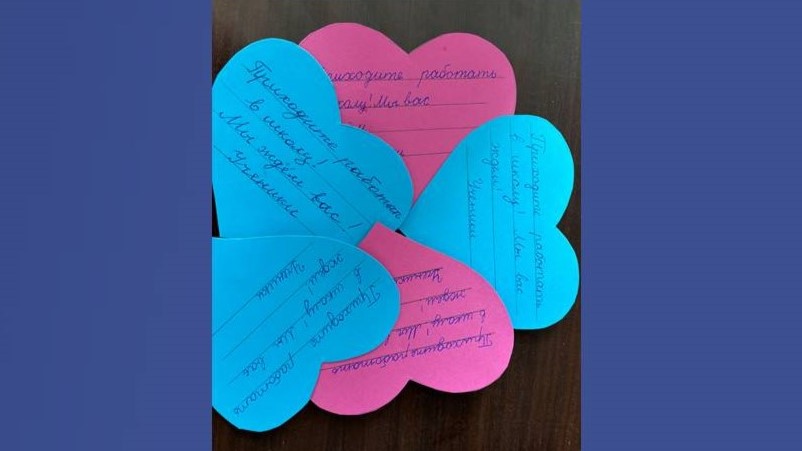 Приходите работать
в школу!
Мы ждём вас!
Ученики
риходите работать
колу! Мы вас
Приходите работать
в школу! Мы вас
ждём!
Ученики
Приходите работать
в школу! Мы вас
ждём!
Ученики
Приходите работать
в школу! Мы
ждём!
Ученики